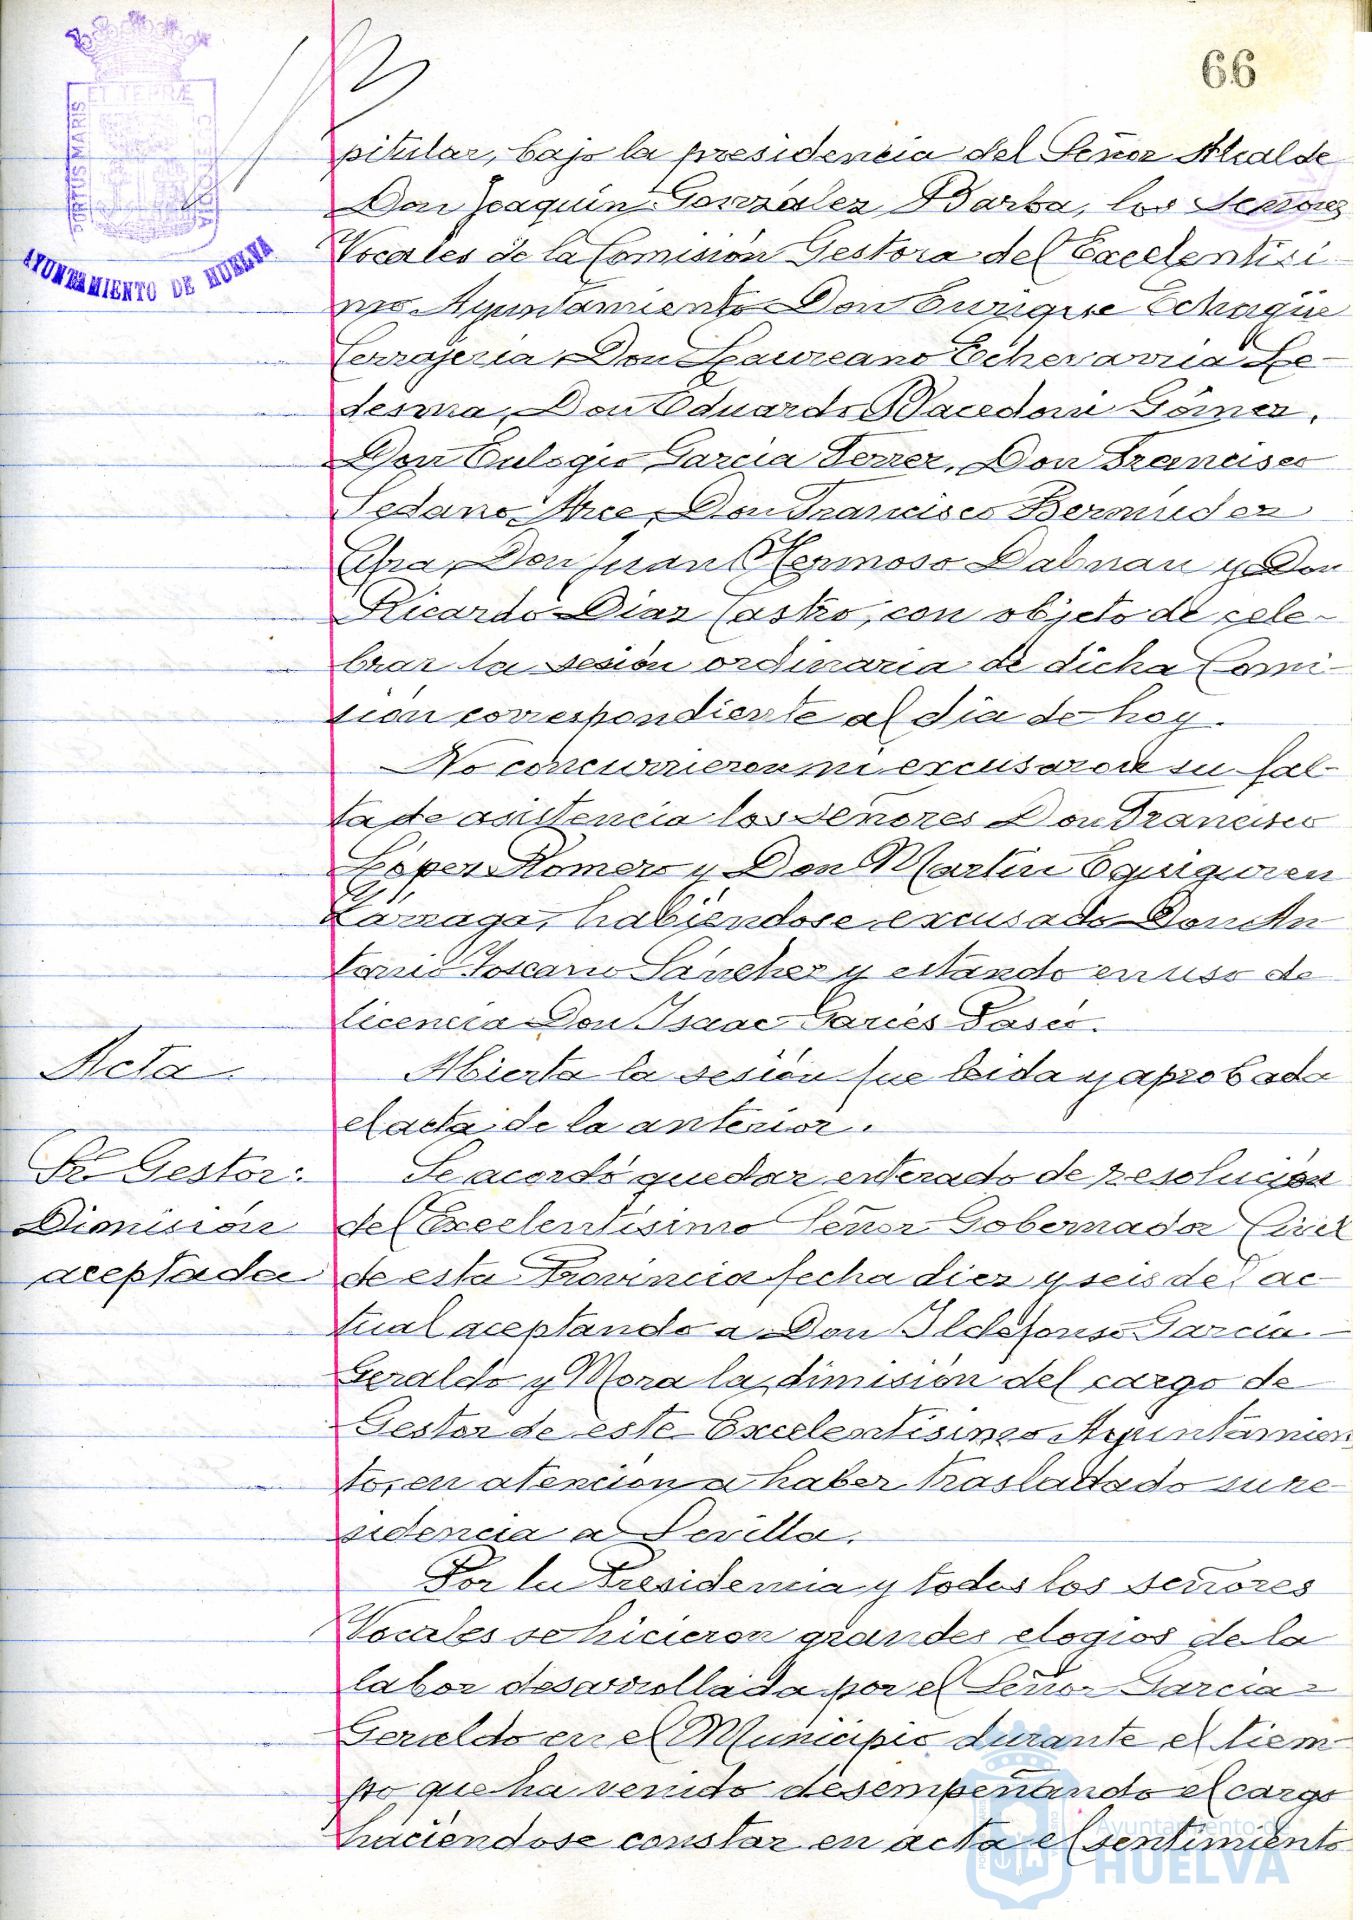 66
PORTUS MARIS ET TERRÆ CUSTODIA
AYUNTAMIENTO DE HUELVA
pitular, bajo la presidencia del Señor Alcalde
Don Joaquín González Barba, los Señores
Vocales de la Comisión Gestora del Excelentísi
mo Ayuntamiento Don Enrique Echagüe
Cerrajería, Don Laureano Echevarría Le-
desma, Don Eduardo Macedoni Gómez,
Don Eulogio García Ferrer, Don Francisco
Sedano Arce, Don Francisco Bermúdez
Don Juan Hermoso Dalnau y Don
Ricardo Díaz Castro, con objeto de cele-
brar la sesión ordinaria de dicha Comi-
sión correspondiente al día de hoy.
No concurrieron ni excusaron su fal-
ta de asistencia los señores Don Francisco
López Romero y Don Martín Eguiguren
Zárraga, habiéndose excusado Don An
tonio Toscano Sánchez y estando en uso de
licencia Don Isaac Garcés Pascó.
Acta.
Abierta la sesión fue leida y aprobada
el acta de la anterior.
Sr. Gestor:
Dimisión
aceptada
Se acordó quedar enterado de resolución
del Excelentísimo Señor Gobernador Civil
de esta Provincia fecha diez y seis del ac-
tual aceptando a Don Ildefonso García-
Geraldo y Mora la dimisión del cargo de
Gestor de este Excelentísimo Ayuntamien
to, en atención a haber trasladado su re-
sidencia a Sevilla.
Por la Presidencia y todos los señores
Vocales se hicieron grandes elogios de la
labor desarrollada por el Señor García-
Geraldo en el Municipio durante el tiem-
po que ha venido desempeñando el cargo
haciéndose constar en acta el sentimiento
Ayuntamiento de
HUELVA